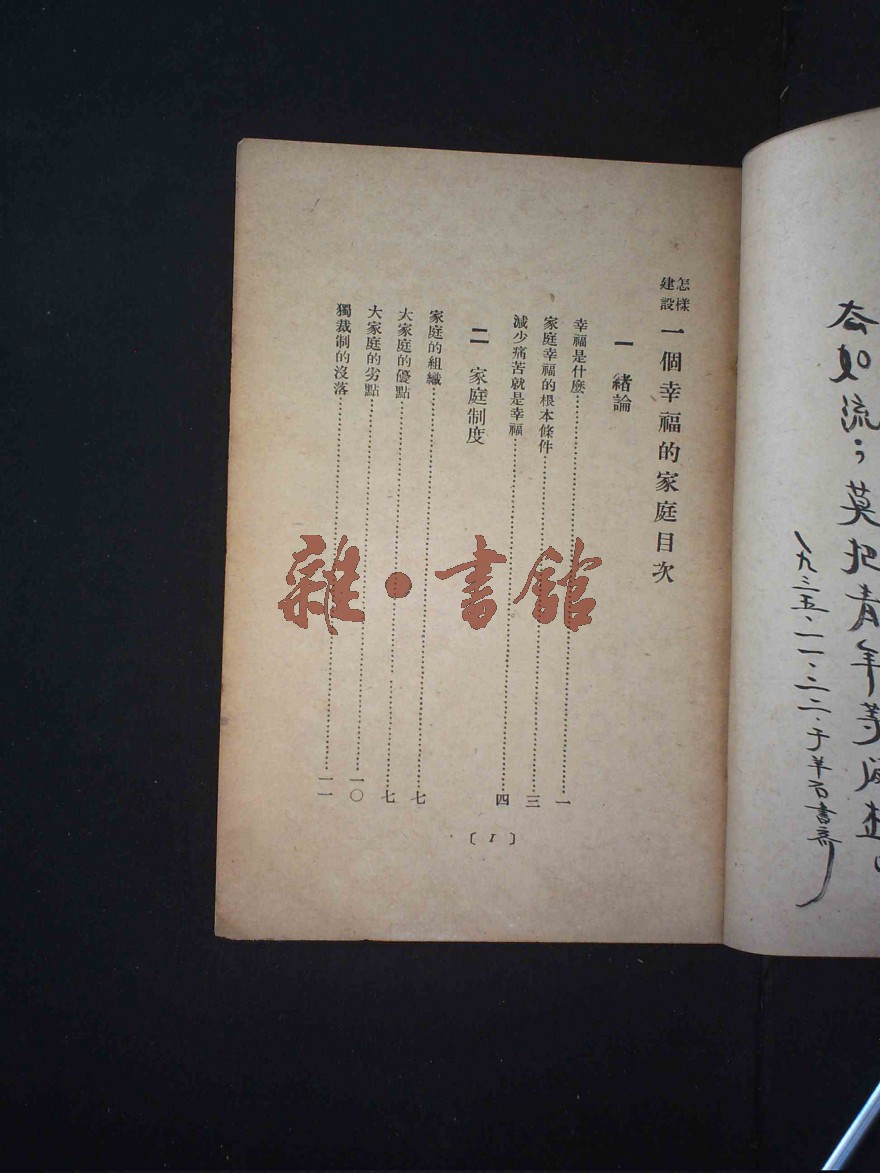 莫把青年等
一九三五·一一·二二·于羊石書齋
怎樣建設一個幸福的家庭目次
一 緒論
幸福是什麼……一
家庭幸福的根本條件……三
減少痛苦就是幸福……四
二 家庭制度
家庭的組織……七
大家庭的優點……七
大家庭的劣點……一〇
獨裁制的沒落……一一
〔I〕
雜·書館